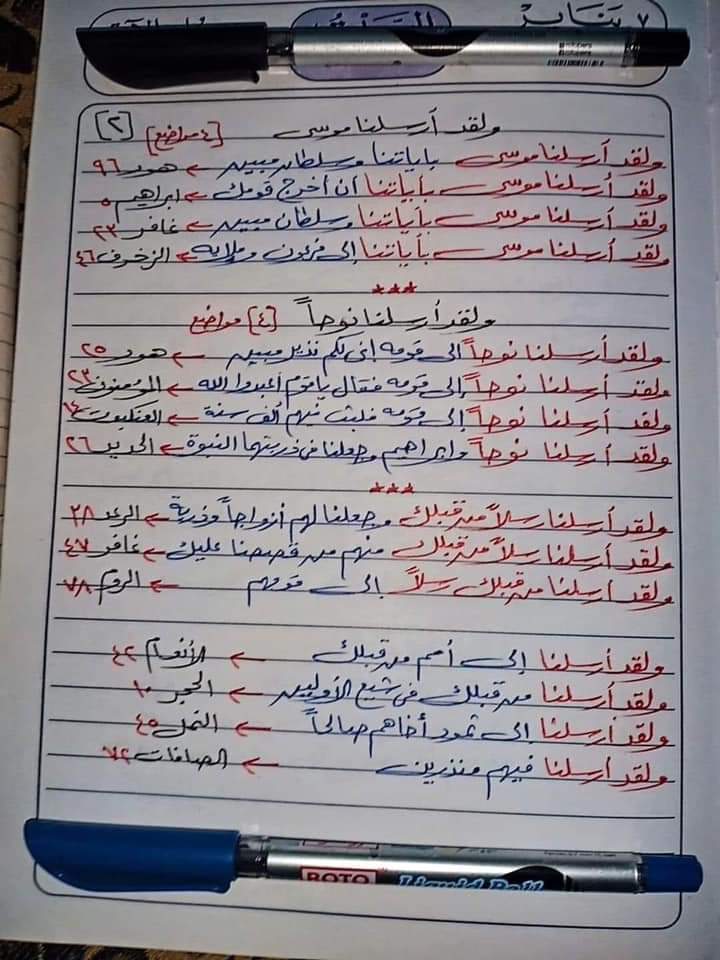 ٧ يناير
ولقد أرسلنا موسى [٤ مواضع] [٢]
ولقد أرسلنا موسى بآياتنا وسلطان مبين ← هود ٩٦
ولقد أرسلنا موسى بآياتنا أن أخرج قومك ← ابراهيم ٥
ولقد أرسلنا موسى بآياتنا وسلطان مبين ← غافر ٢٣
ولقد أرسلنا موسى بآياتنا إلى فرعون وملايه ← الزخرف ٤٦
***
ولقد أرسلنا نوحاً [٤] مواضع
ولقد أرسلنا نوحاً الى قومه إنى لكم نذير مبين ← هود ٢٥
ولقد أرسلنا نوحاً إلى قومه فقال يا قوم أعبدوا الله المؤمنون ٢٣
ولقد أرسلنا نوحاً إلى قومه فلبث فيهم ألف سنة ← العنكبوت ١٤
ولقد أرسلنا نوحاً وابراهيم وجعلنا فى ذريتهما النبوة ← الحديد ٢٦
***
ولقد أرسلنا رسلاً من قبلك وجعلنا لهم أزواجاً وذرية ← الرعد ٣٨
ولقد أرسلنا رسلاً من قبلك منهم من قصصنا عليك ← غافر ٤٧
ولقد أرسلنا من قبلك رسلاً إلى قومهم ← الروم ٧٨
ولقد أرسلنا إلى أمم من قبلك ← الأنعام ٤٢
ولقد أرسلنا من قبلك فى شيع الأولين ← الحجر ١٠
ولقد أرسلنا إلى ثمود أخاهم صالحاً ← النمل ٤٥
ولقد أرسلنا فيهم منذرين ← الصافات ٧٢
ROTO Liquid Ball